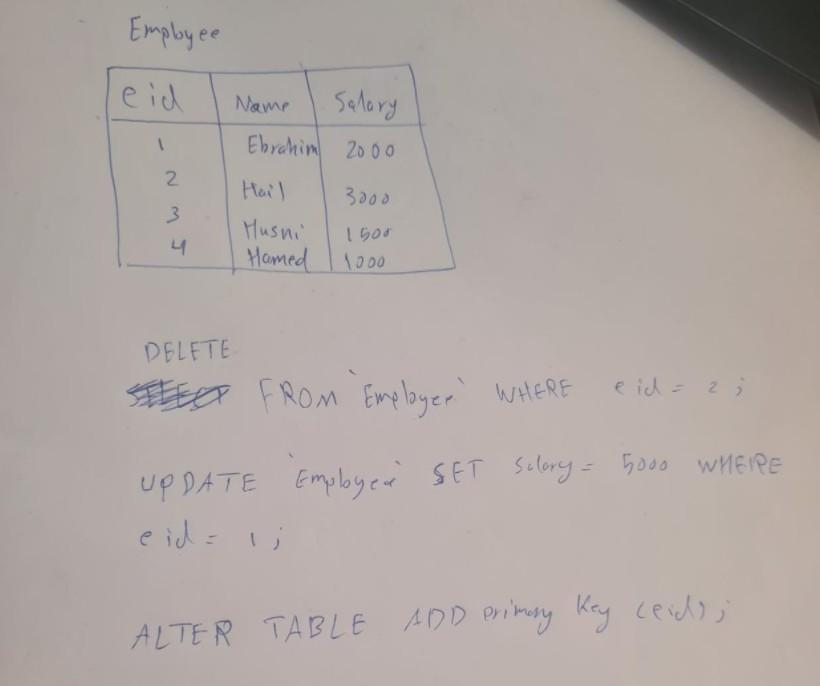 Employee
eid Name Salary
1 Ebrahim 2000
2 Hail 3000
3 Husni 1500
4 Hamed 1000
DELETE
FROM `Employee` WHERE eid = 2;
UPDATE `Employee` SET Salary = 5000 WHERE
eid = 1;
ALTER TABLE ADD primary Key (eid);